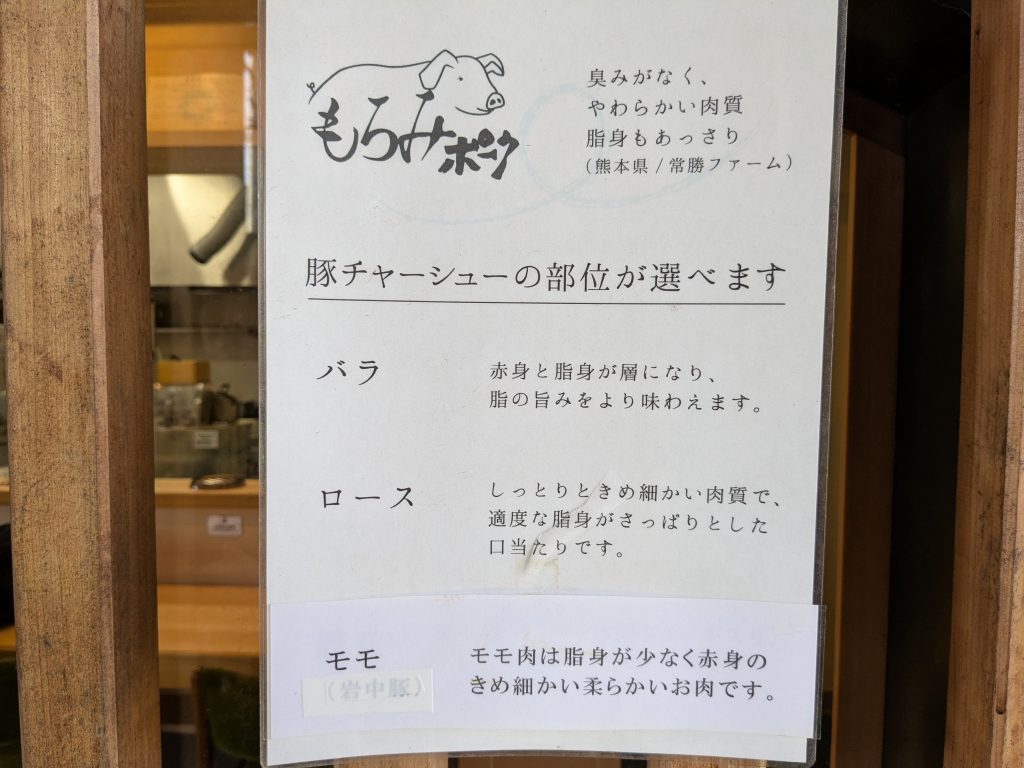 もろみポーク
臭みがなく、
やわらかい肉質
脂身もあっさり
(熊本県/常勝ファーム)
豚チャーシューの部位が選べます
バラ
赤身と脂身が層になり、
脂の旨みをより味わえます。
ロース
しっとりときめ細かい肉質で、
適度な脂身がさっぱりとした
口当たりです。
モモ
(岩中豚)
モモ肉は脂身が少なく赤身の
きめ細かい柔らかいお肉です。